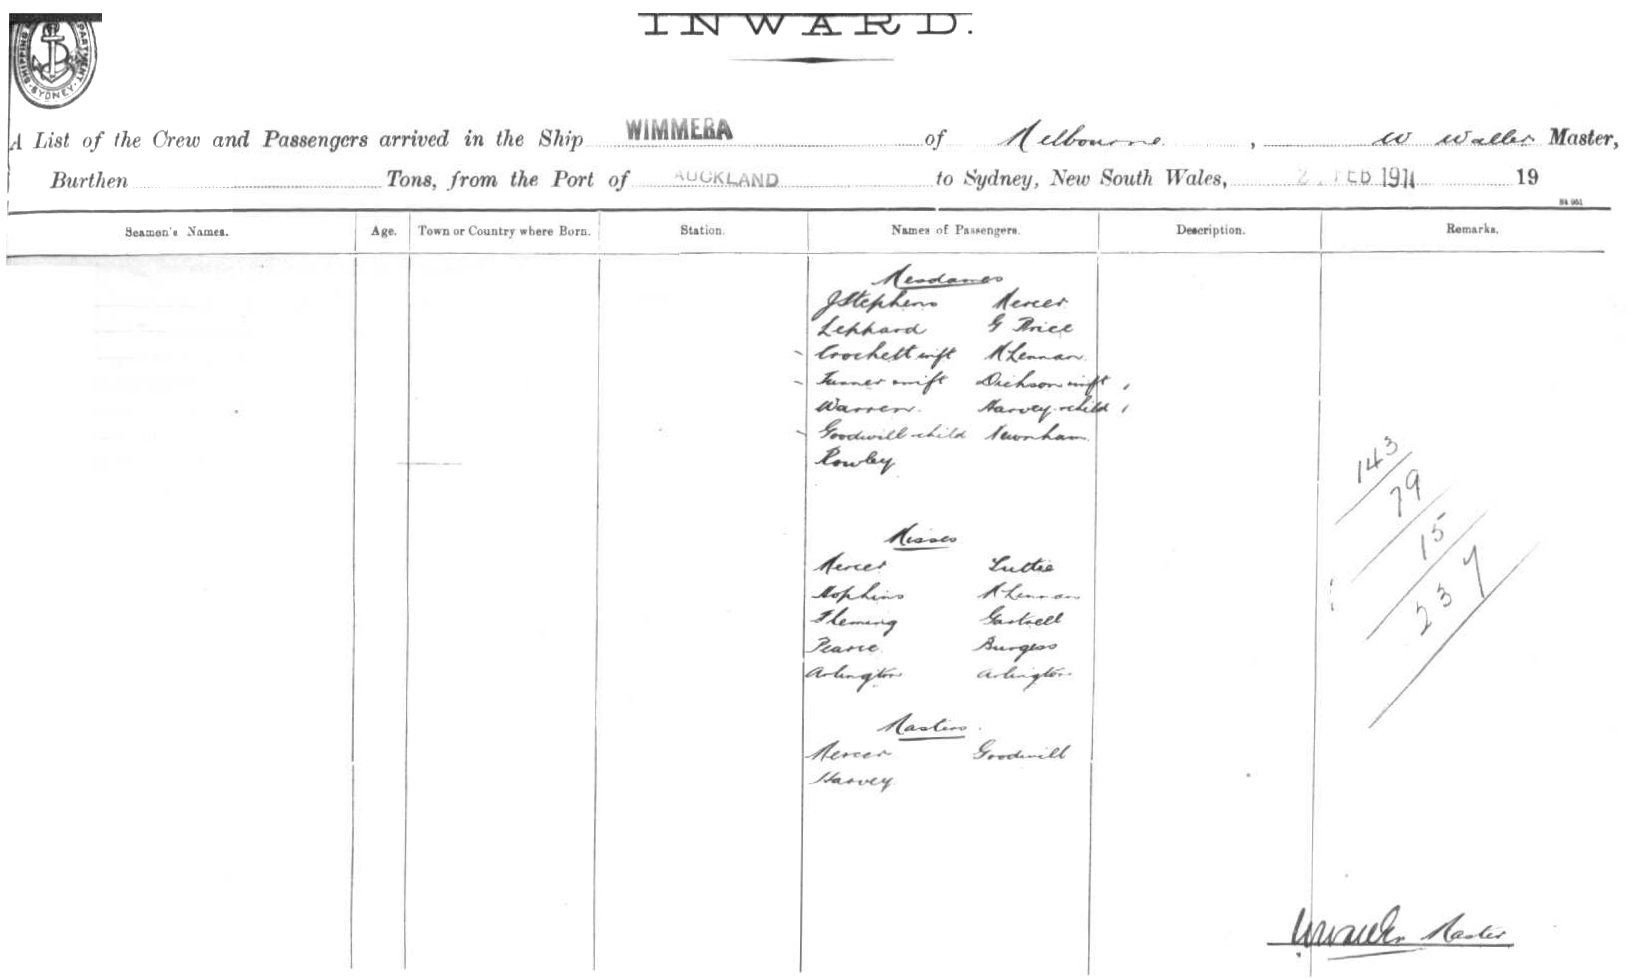 INWARD.
SHIPPING DEPARTMENT SYDNEY
A List of the Crew and Passengers arrived in the Ship WIMMERA of Melbourne, W Waller Master,
Burthen Tons, from the Port of AUCKLAND to Sydney, New South Wales, 2. FEB 1911 19
Seamen's Names. Age. Town or Country where Born. Station. Names of Passengers. Description. Remarks.
Mesdames
J Stephens Mercer
Lephard G Price
Crochett & inft McLennan
Turner & inft Dickson & inft
Warren. Harvey & child
Goodwill & child Newnham
Rowley
143
79
15
237
Misses
Mercer Luttie
Hopkins McLennan
Fleming Gartrell
Pearce Burgess
Arlington Arlington
Masters.
Mercer Goodwill
Harvey
Master